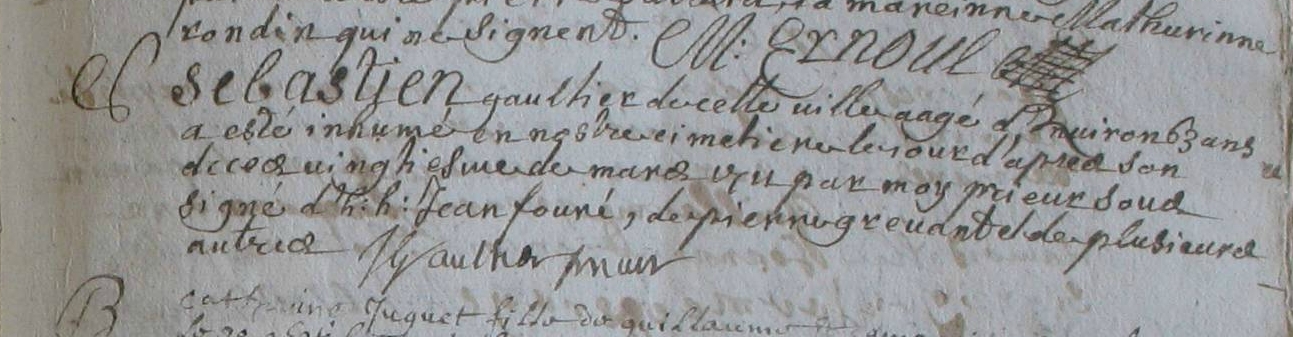 la mareinne Mathurinne
rondin qui ne signent. M: Ernoul
S Sebastien gaultier de cette ville aagé d'Environ 63 ans
a esté inhumé en nostre cimetiere le jour d'apres son
deces vingtiesme de mars par moy prieur sous
signé d'h: h: Jean fouré, de pierre grevant et de plusieurs
autres Gaultier prieur
B Catherine Juguet fille de guillaume